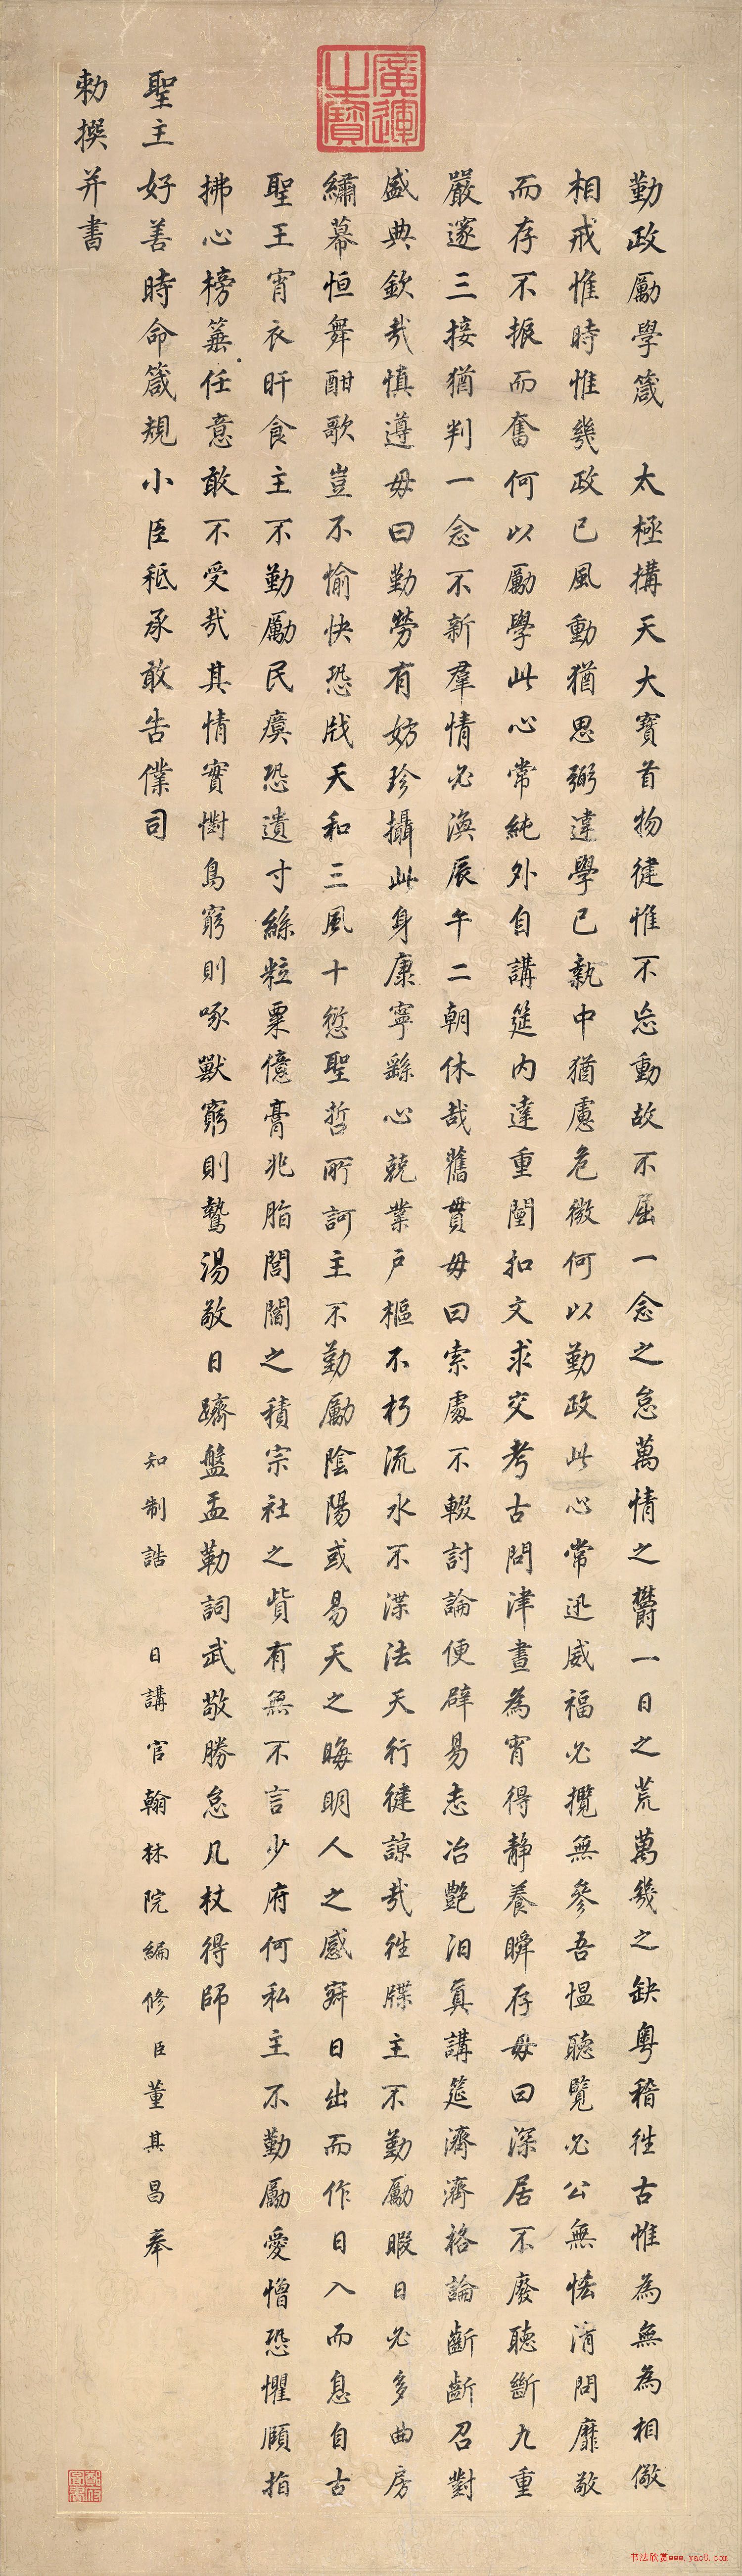 勤政勵學箴　太極搆天大寶首物健惟不忘動故不屈一念之怠萬情之欝一日之荒萬幾之缺粵稽徃古惟為無為相儆
相戒惟時惟幾政已風動猶思弼違學已執中猶慮危微何以勤政此心常迅威福必攬無參吾慍聽覽必公無恡清問靡敢
而存不振而奮何以勵學此心常純外自講筵內達重闈扣文求交考古問津晝為宵得靜養瞬存毋曰深居不廢聽斷九重
嚴邃三接猶判一念不新羣情必渙辰午二朝休哉舊貫毋曰索處不輟討論便辟易志冶艷汨真講筵濟濟格論齗齗召對
盛典欽哉慎遵毋曰勤勞有妨珍攝此身康寧繇心兢業戶樞不朽流水不渫法天行健諒哉徃牒主不勤勵暇日必多曲房
繡幕恒舞酣歌豈不愉快恐戕天和三風十愆聖哲所訶主不勤勵陰陽或易天之晦明人之感寐日出而作日入而息自古
聖王宵衣旰食主不勤勵民瘼恐遺寸絲粒粟億膏兆脂閭閻之積宗社之貲有無不言少府何私主不勤勵愛憎恐懼頤指
拂心榜箠任意敢不受哉其情實懟鳥窮則啄獸窮則鷙湯敬日躋盤盂勒詞武敬勝怠几杖得師
聖主好善時命箴規小臣秪承敢告僕司　知制誥　日講官翰林院編修臣董其昌奉
勅撰并書
廣運之寶
书法欣赏www.yac8.com